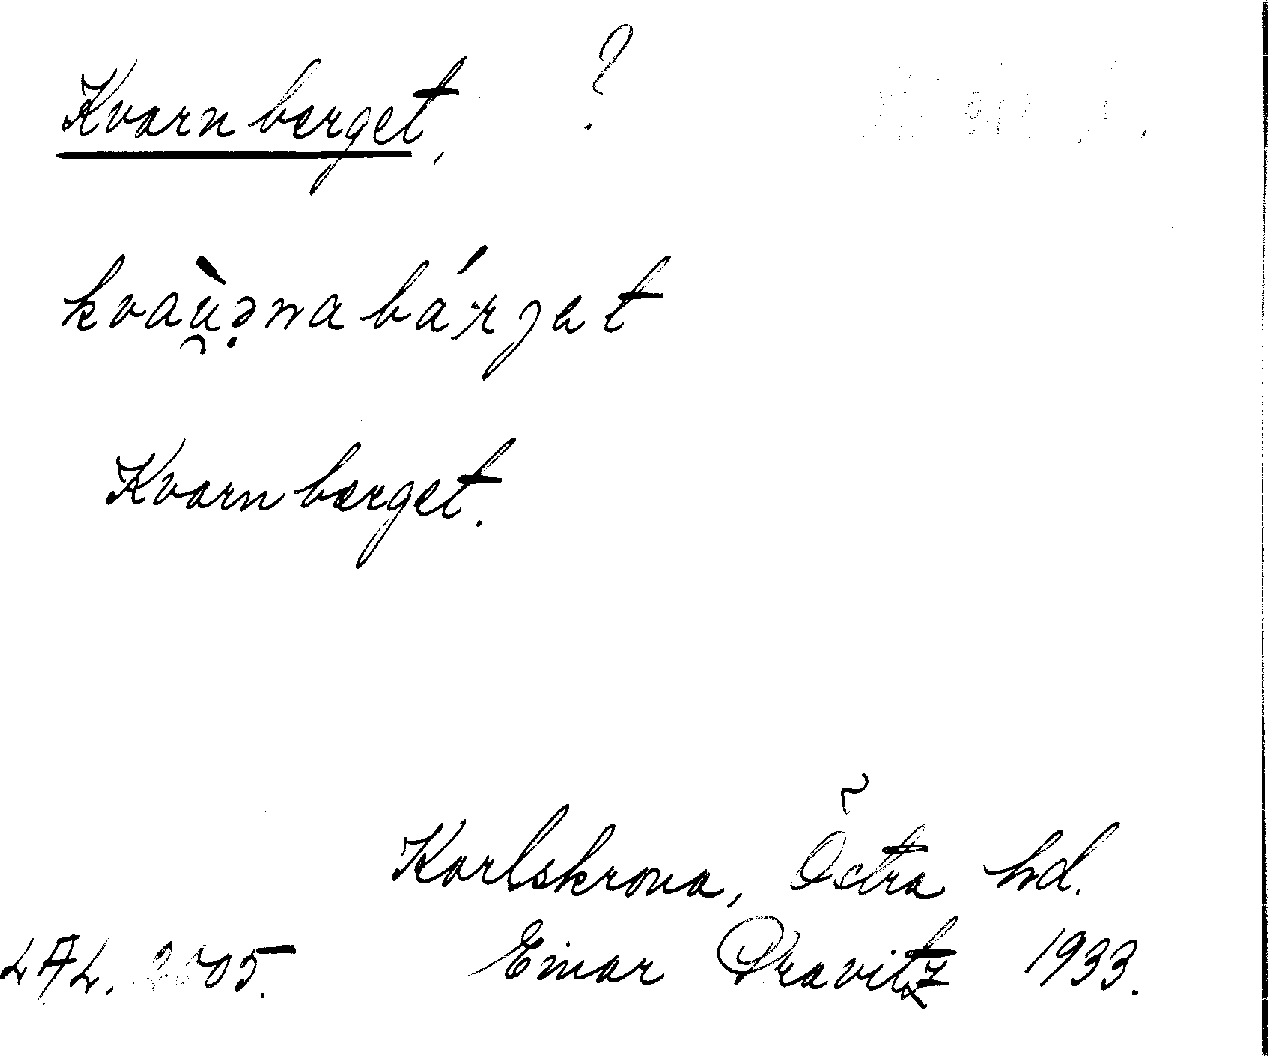 Kvarnberget, ?
kvaṵ̀ə̣nabárjat
Kvarnberget.
Karlskrona, Östra hd.
LAL. 2005. Einar Pravitz 1933.